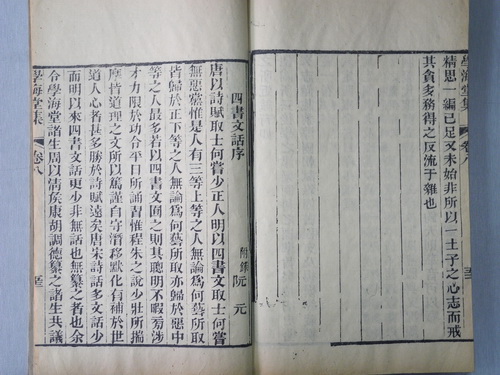 學海堂集 卷八
精思一編已足又未始非所以一士子之心志而戒
其貪多務得之反流于雜也
四書文話序
附錄 阮元
唐以詩賦取士何嘗少正人明以四書文取士何嘗
無惡黨惟是人有三等上等之人無論爲何藝所取
皆歸於正下等之人無論爲何藝所取亦歸於惡中
等之人最多若以四書文囿之則其聰明不暇旁涉
才力限於功令平日所誦習惟程朱之說少壯所揣
摩皆道理之文所以篤謹自守潛移默化有補於世
道人心者甚多勝於詩賦遠矣唐宋詩話多文話少
而明以來四書文話更少非無話也無纂之者也余
令學海堂諸生周以清侯康胡調德纂之諸生共議
學海堂集 卷八